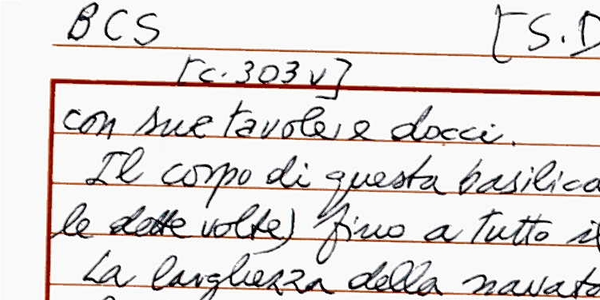 BCS [S.D
[c. 303 v]
con sue tavole e docci.
Il corpo di questa basilica
le dette volte) fino a tutto il
La larghezza della navata